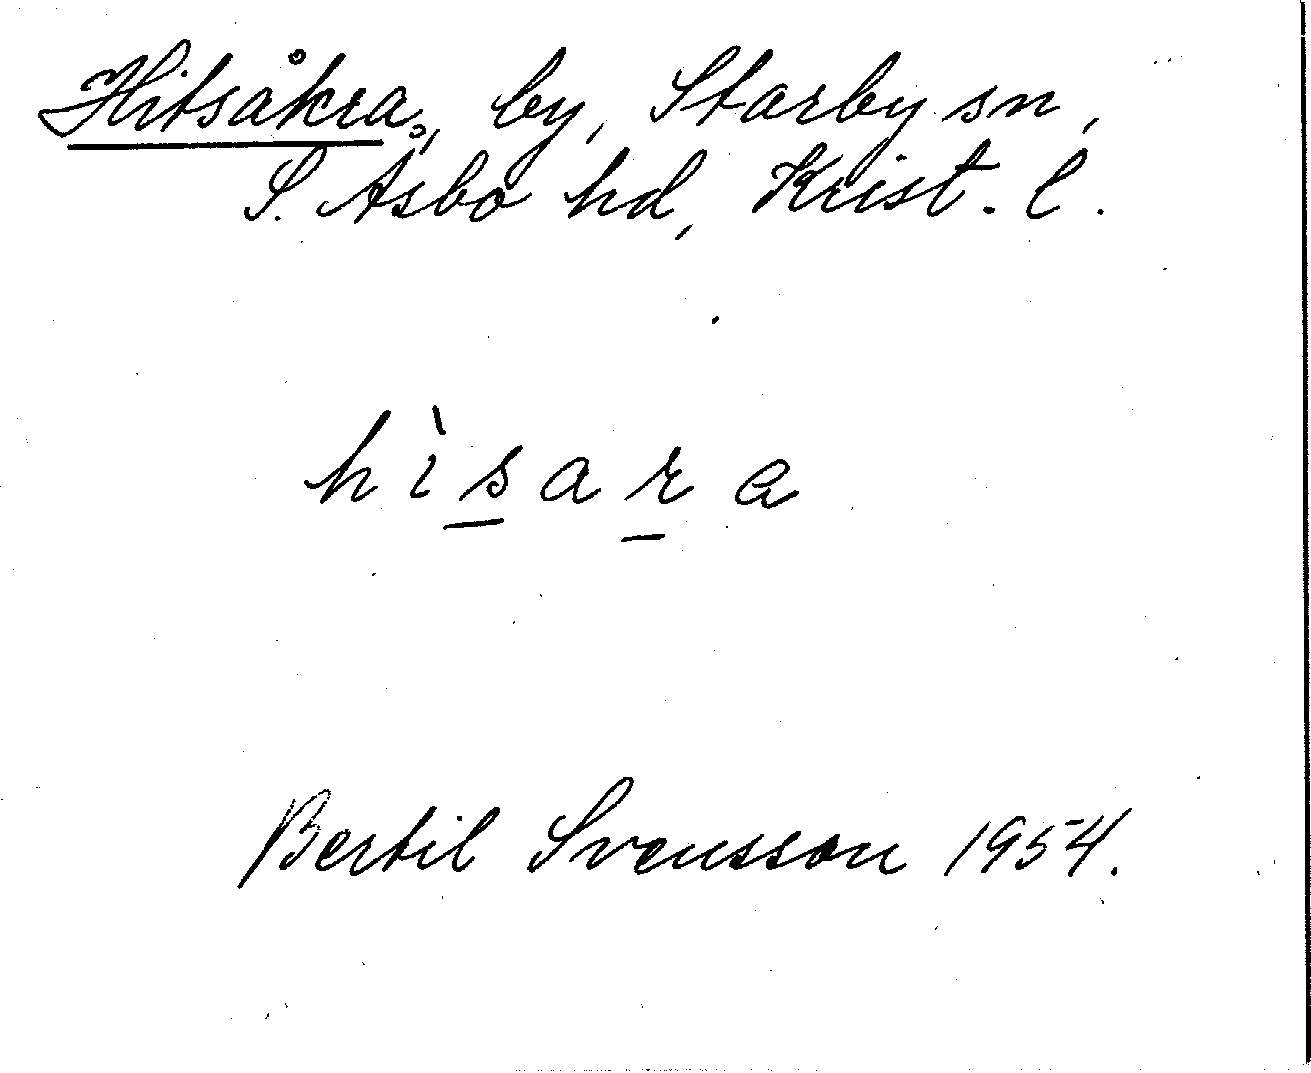 Hitsåkra, by, Starby sn,
S. Åsbo hd, Krist. l.
hìs̲ar̲a
Bertil Svensson 1954.